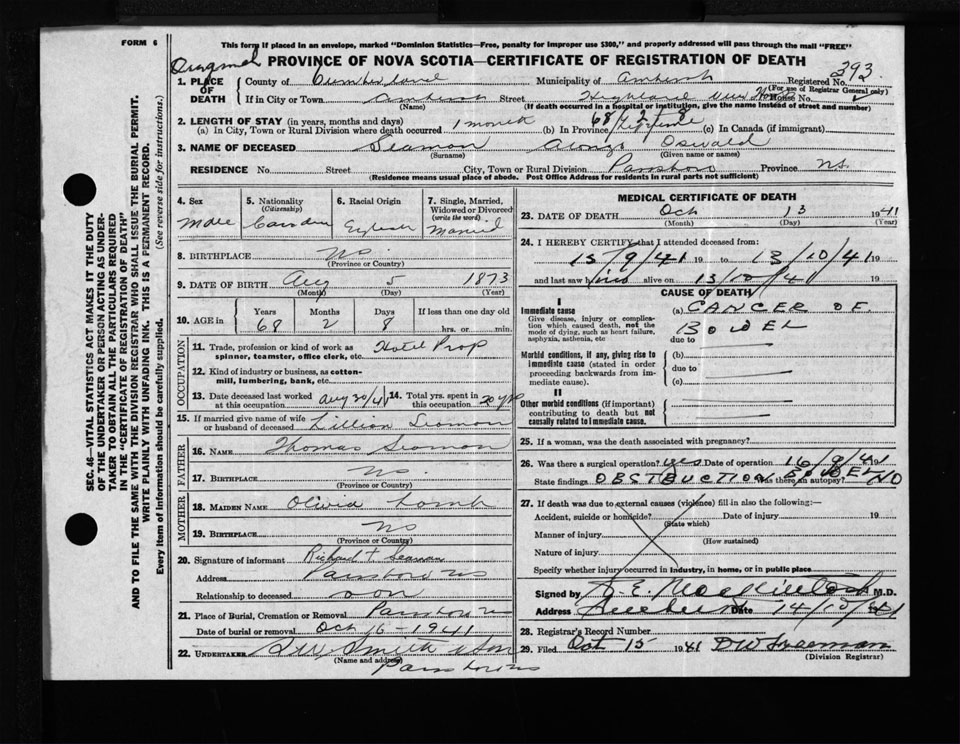 FORM 6
This form if placed in an envelope, marked "Dominion Statistics—Free, penalty for improper use $300," and properly addressed will pass through the mail "FREE"
PROVINCE OF NOVA SCOTIA—CERTIFICATE OF REGISTRATION OF DEATH
1. PLACE OF DEATH County of Cumberland Municipality of Amherst Registered No. 393
(For use of Registrar General only)
If in City or Town Amherst Street Highland View Hosp House No.
(Name) (If death occurred in a hospital or institution, give the name instead of street and number)
2. LENGTH OF STAY (in years, months and days) 68 / 2 / 8
(a) In City, Town or Rural Division where death occurred 1 month (b) In Province Lifetime (c) In Canada (if immigrant)
3. NAME OF DECEASED Seaman Alonzo Oswald
(Surname) (Given name or names)
RESIDENCE No. Street City, Town or Rural Division Parrsboro Province N.S.
(Residence means usual place of abode. Post Office Address for residents in rural parts not sufficient)
4. Sex 5. Nationality (Citizenship) 6. Racial Origin 7. Single, Married, Widowed or Divorced (write the word)
Male Canadian English Married
8. BIRTHPLACE N.S.
(Province or Country)
9. DATE OF BIRTH Aug 5 1873
(Month) (Day) (Year)
10. AGE in Years Months Days If less than one day old
68 2 8 hrs. or min.
OCCUPATION
11. Trade, profession or kind of work as spinner, teamster, office clerk, etc. Hotel Prop
12. Kind of industry or business, as cotton-mill, lumbering, bank, etc.
13. Date deceased last worked at this occupation Aug 30/41 14. Total yrs. spent in this occupation 20 yrs
15. If married give name of wife or husband of deceased Lillian Seaman
FATHER
16. NAME Thomas Seaman
17. BIRTHPLACE N.S.
(Province or Country)
MOTHER
18. MAIDEN NAME Olivia Lamb
19. BIRTHPLACE N.S.
(Province or Country)
20. Signature of informant Richard T Seaman
Address Parrsboro NS
Relationship to deceased son
21. Place of Burial, Cremation or Removal Parrsboro NS
Date of burial or removal Oct 16-1941
22. UNDERTAKER Smith & Son
(Name and address)
Parrsboro NS
MEDICAL CERTIFICATE OF DEATH
23. DATE OF DEATH Oct 13 1941
(Month) (Day) (Year)
24. I HEREBY CERTIFY that I attended deceased from:
15/9/41 19 to 13/10/41 19
and last saw him alive on 13/10/41 19
CAUSE OF DEATH
I
Immediate cause (a) CANCER OF
Give disease, injury or complication which caused death, not the mode of dying, such as heart failure, asphyxia, asthenia, etc
BOWEL
due to
Morbid conditions, if any, giving rise to immediate cause (stated in order proceeding backwards from immediate cause). (b)
due to
(c)
II
Other morbid conditions (if important) contributing to death but not causally related to immediate cause.
25. If a woman, was the death associated with pregnancy?
26. Was there a surgical operation? Yes Date of operation 16/9/41
State findings OBSTRUCTION BOWEL Was there an autopsy? NO
27. If death was due to external causes (violence) fill in also the following:—
Accident, suicide or homicide? Date of injury 19
(State which)
Manner of injury
(How sustained)
Nature of injury
Specify whether injury occurred in industry, in home, or in public place
Signed by M.D.
Address Amherst Date 14/10/41
28. Registrar's Record Number
29. Filed Oct 15 1941 D W Freeman
(Division Registrar)
SEC. 46—VITAL STATISTICS ACT MAKES IT THE DUTY
OF THE UNDERTAKER OR PERSON ACTING AS UNDERTAKER TO OBTAIN ALL THE PARTICULARS REQUIRED
IN THE "CERTIFICATE OF REGISTRATION OF DEATH"
AND TO FILE THE SAME WITH THE DIVISION REGISTRAR WHO SHALL ISSUE THE BURIAL PERMIT.
WRITE PLAINLY WITH UNFADING INK. THIS IS A PERMANENT RECORD.
Every item of information should be carefully supplied. (See reverse side for instructions.)